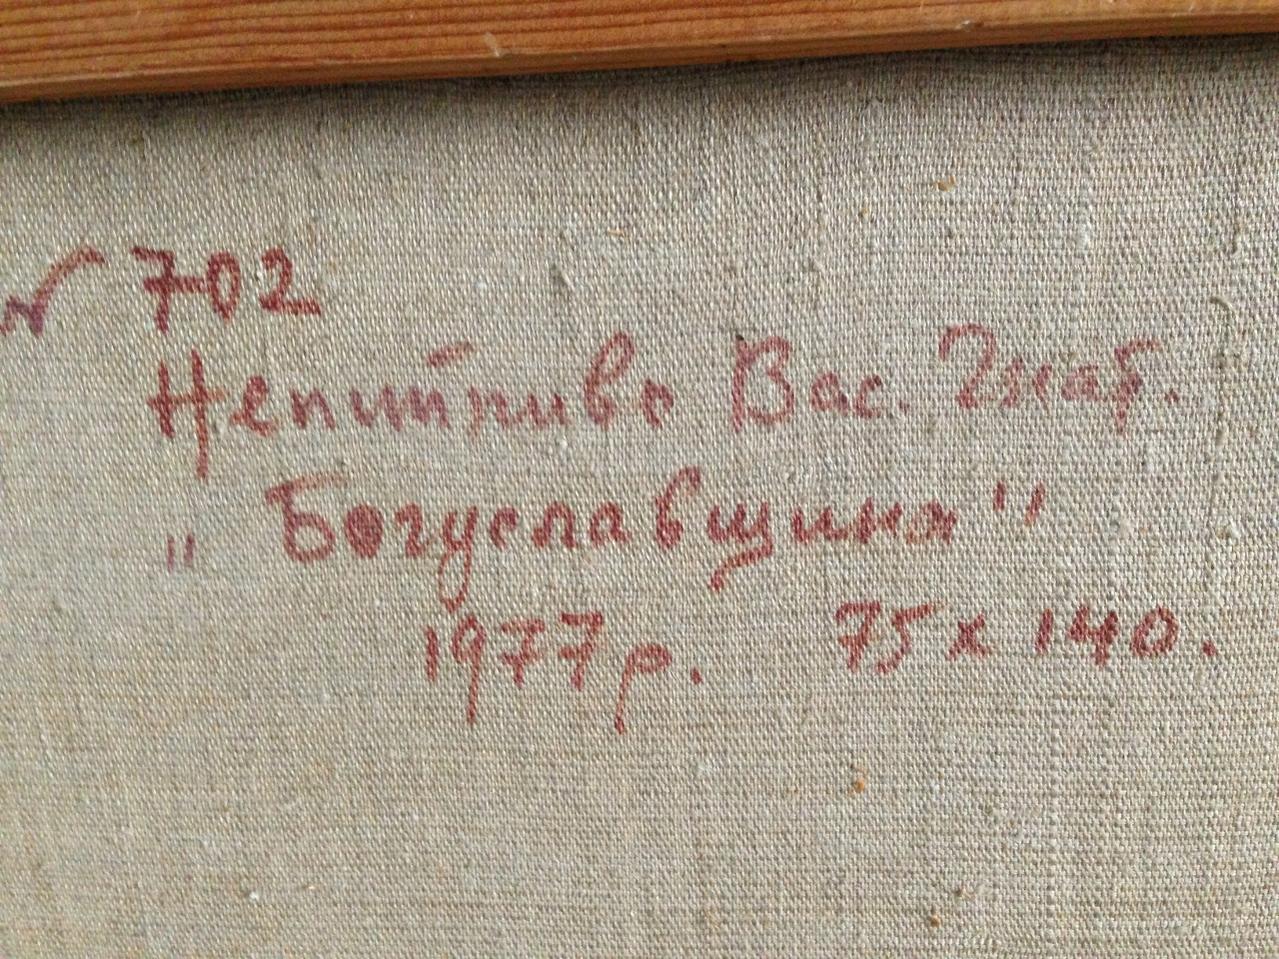 № 702
Непийпиво Вас. Гнат.
"Богуславщина"
1977 р. 75 х 140.